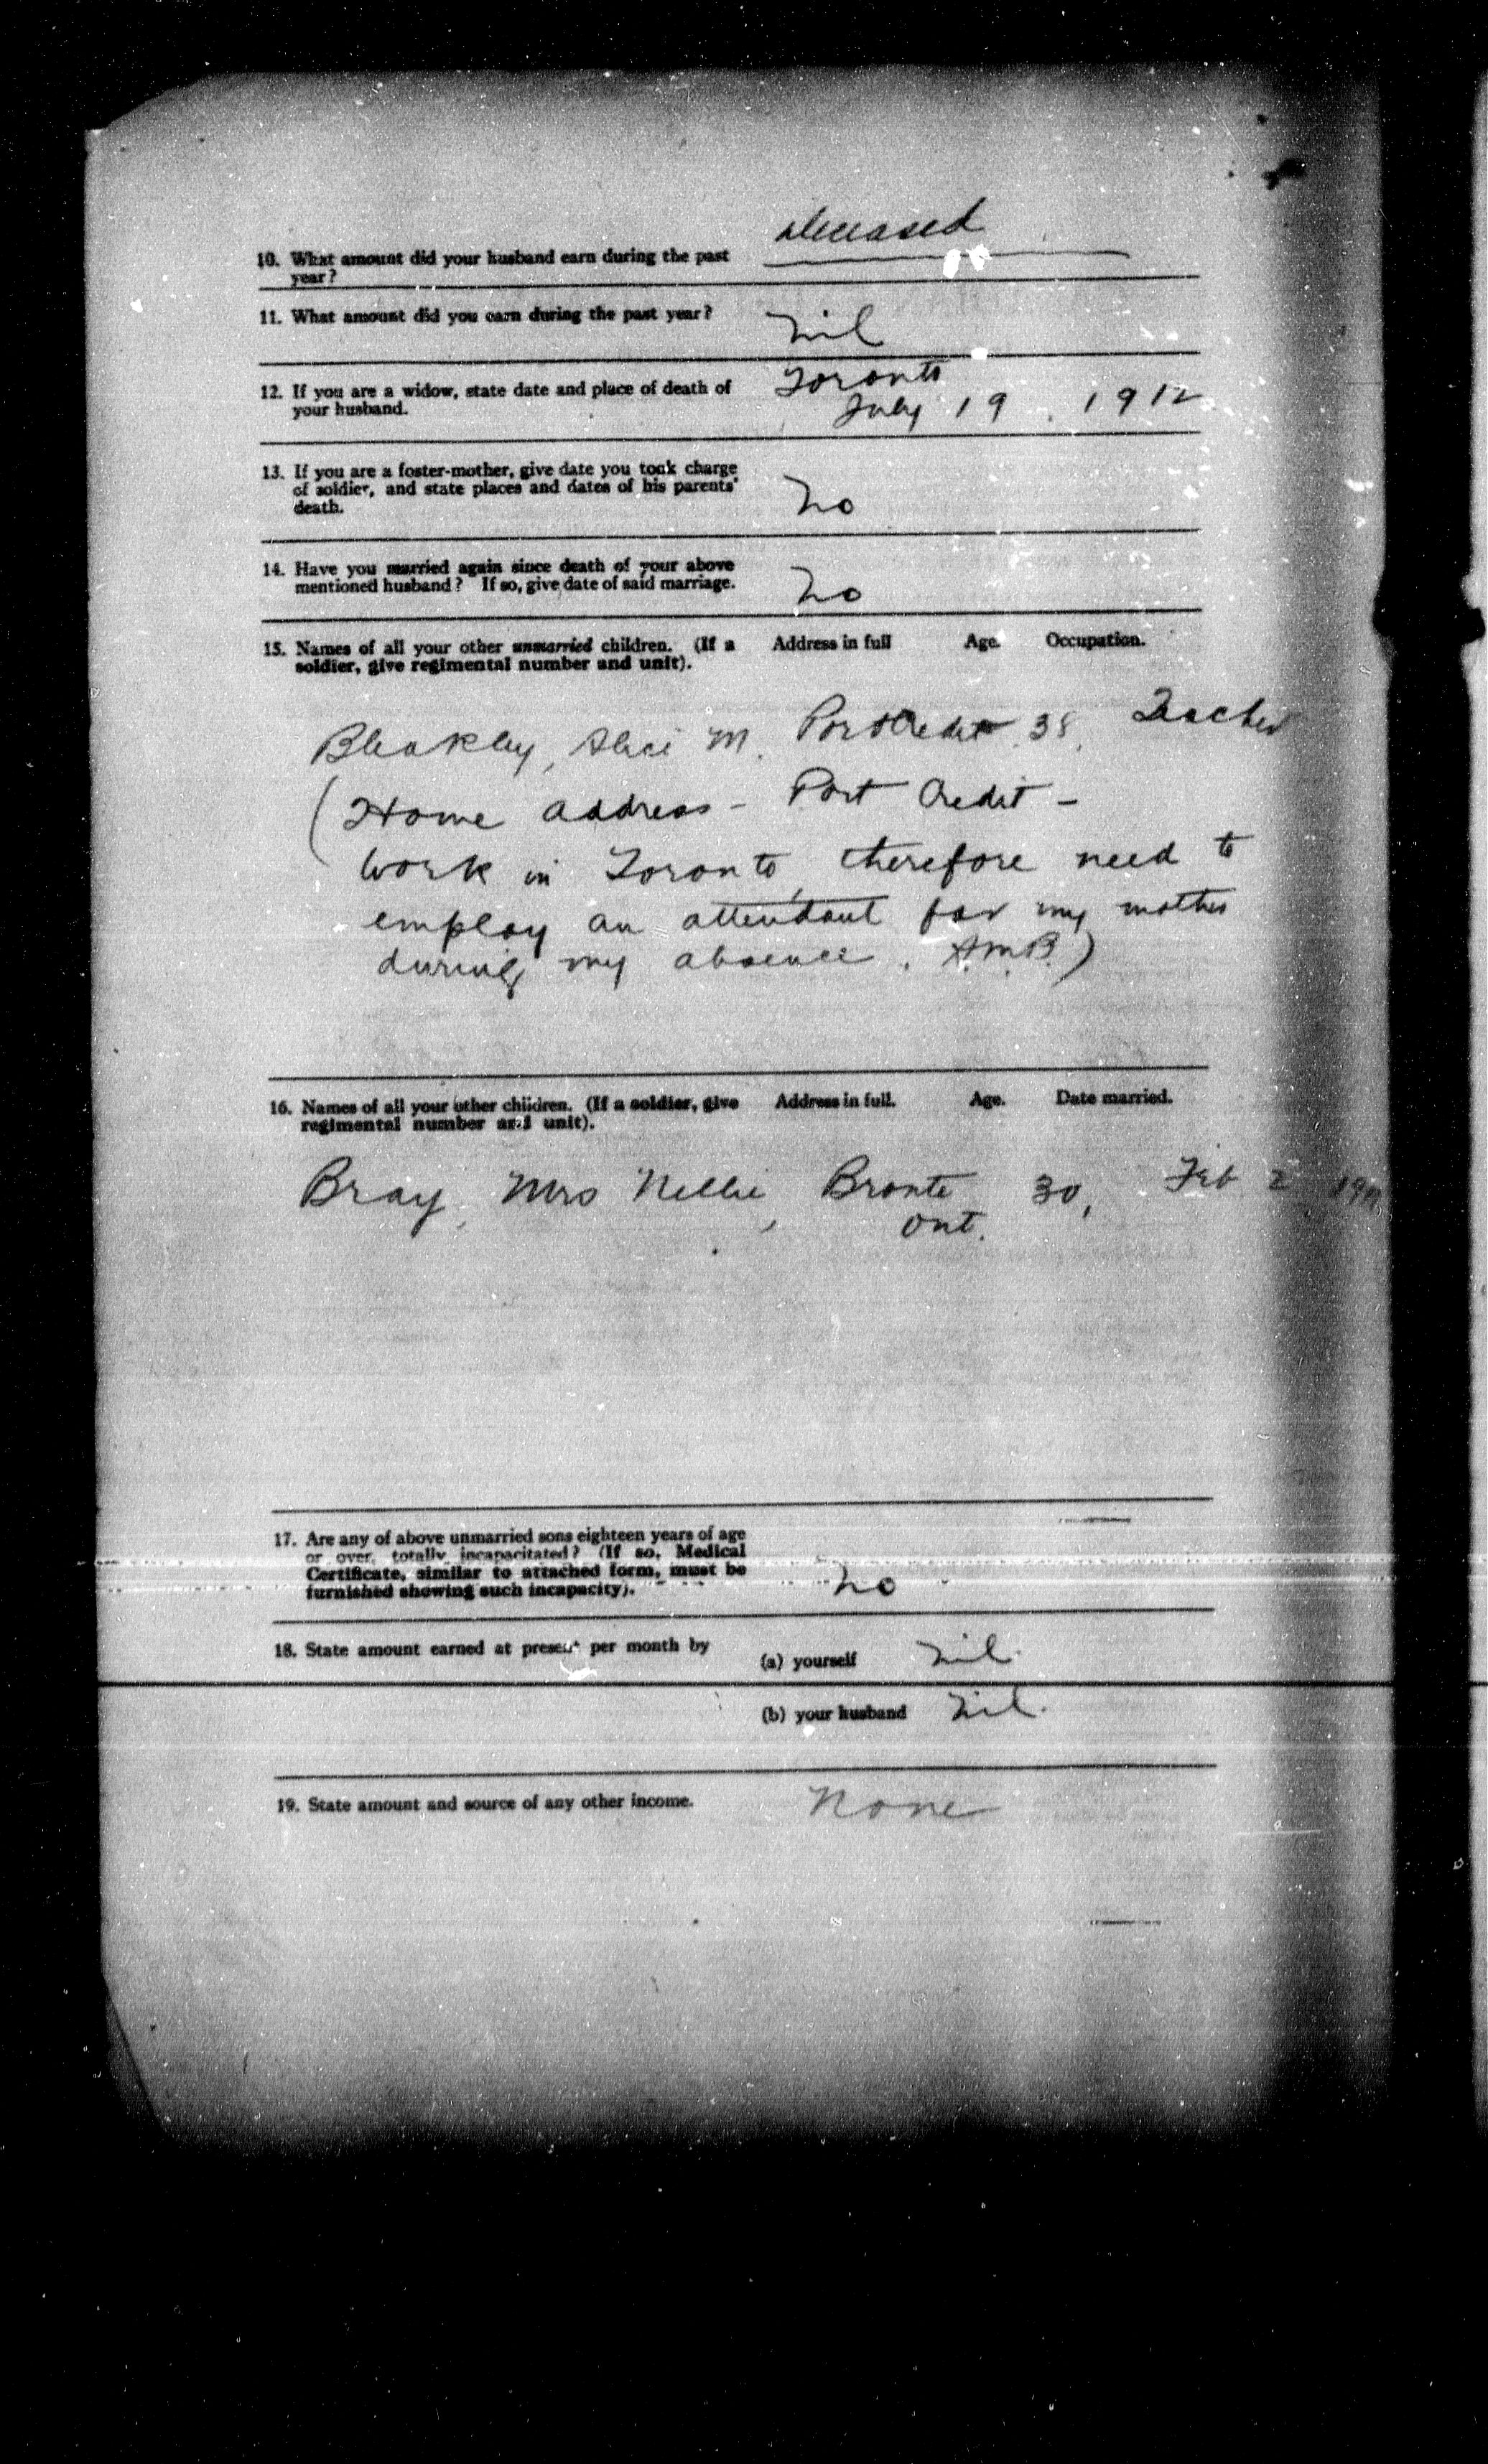 deceased
10. What amount did your husband earn during the past
year?
11. What amount did you earn during the past year? nil
12. If you are a widow, state date and place of death of Toronto
your husband. July 19, 1912
13. If you are a foster-mother, give date you took charge
of soldier, and state places and dates of his parents'
death. no
14. Have you married again since death of your above
mentioned husband? If so, give date of said marriage. no
15. Names of all your other unmarried children. (If a Address in full Age. Occupation.
soldier, give regimental number and unit).
Bleakley, Alice M. Port Credit 38, Teacher
(Home address - Port Credit -
Work in Toronto, therefore need to
employ an attendant for my mother
during my absence. A.M.B.)
16. Names of all your other children. (If a soldier, give Address in full. Age. Date married.
regimental number and unit).
Bray, Mrs Nellie, Bronte 30, Feb 2
Ont.
17. Are any of above unmarried sons eighteen years of age
or over, totally incapacitated? (If so, Medical
Certificate, similar to attached form, must be
furnished showing such incapacity). no
18. State amount earned at present per month by (a) yourself nil
(b) your husband nil.
19. State amount and source of any other income. None